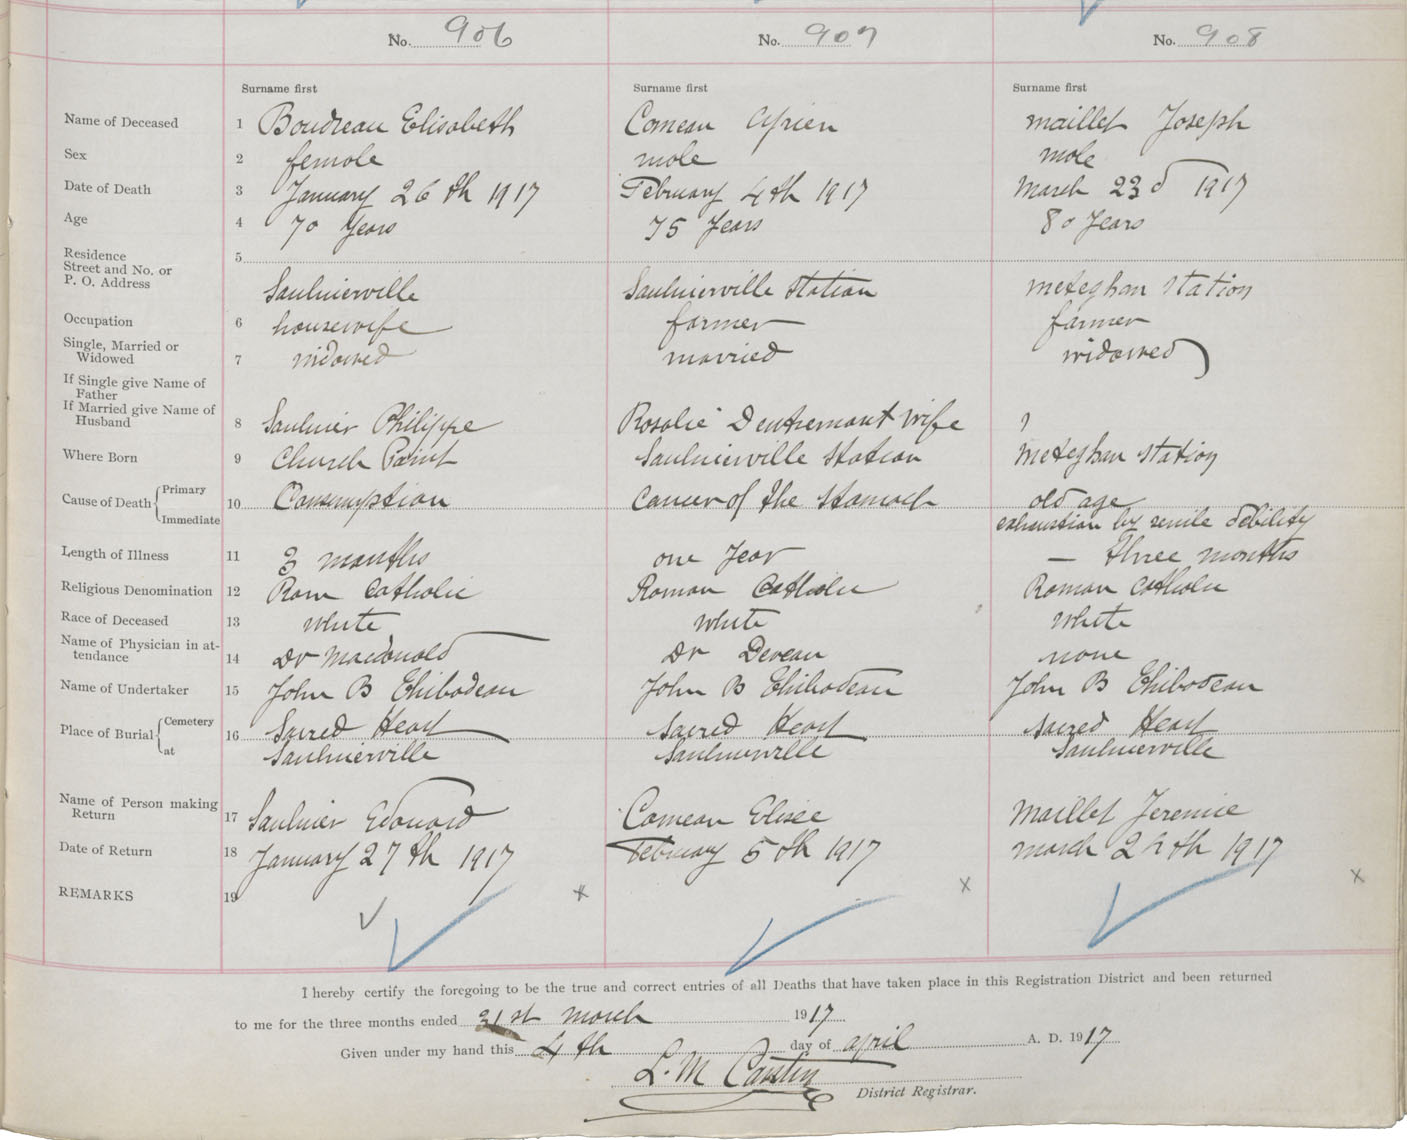 No. 906 No. 907 No. 908
Surname first Surname first Surname first
Name of Deceased 1 Boudreau Elisabeth Comeau Cyrien Maillet Joseph
Sex 2 female male male
Date of Death 3 January 26th 1917 February 4th 1917 March 23d 1917
Age 4 70 years 75 years 80 years
Residence
Street and No. or
P. O. Address 5 Saulnierville Saulnierville Station Meteghan Station
Occupation 6 housewife farmer farmer
Single, Married or
Widowed 7 widowed married widowed
If Single give Name of
Father
If Married give Name of
Husband 8 Saulnier Philippe Rosalie Dentremont wife ?
Where Born 9 Church Point Saulnierville Station Meteghan Station
Cause of Death Primary 10 Consumption Cancer of the Stomach old age
Immediate exhaustion by senile debility
Length of Illness 11 3 months one year – three months
Religious Denomination 12 Rom Catholic Roman Catholic Roman Catholic
Race of Deceased 13 white white white
Name of Physician in at-
tendance 14 Dr Macdonald Dr Deveau none
Name of Undertaker 15 John B Thibodeau John B Thibodeau John B Thibodeau
Place of Burial Cemetery 16 Sacred Heart Sacred Heart Sacred Heart
at Saulnierville Saulnierville Saulnierville
Name of Person making
Return 17 Saulnier Edouard Comeau Elisée Maillet Jeremie
Date of Return 18 January 27th 1917 February 5th 1917 March 24th 1917
REMARKS 19
I hereby certify the foregoing to be the true and correct entries of all Deaths that have taken place in this Registration District and been returned
to me for the three months ended 31st March 1917
Given under my hand this 4th day of april A. D. 1917
L. M
District Registrar.